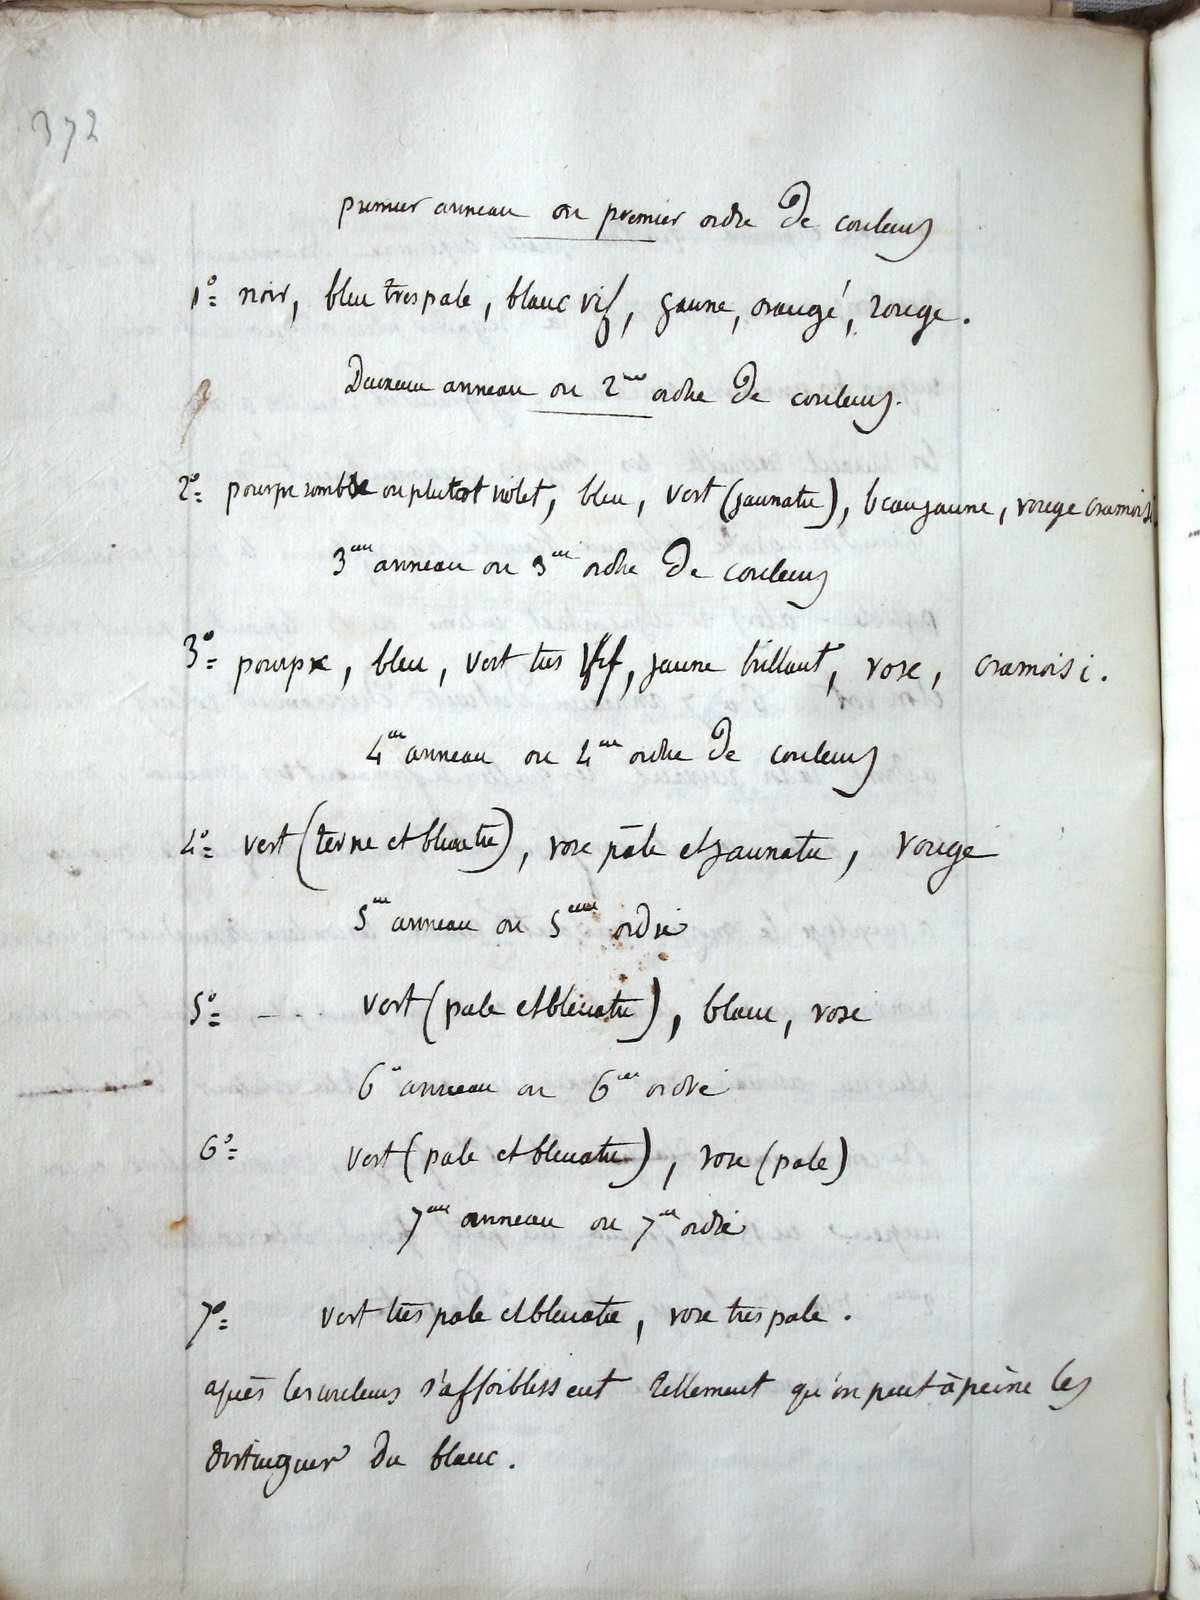 372
premier anneau ou premier ordre de couleurs
1°= noir, bleu trespale, blanc vif, jaune, orangé, rouge.
Deuxieme anneau ou 2me ordre de couleurs.
2°= pourpre sombre ou plutot violet, bleu, vert (jaunatre), beau jaune, rouge cramoisi
3me anneau ou 3me ordre de couleurs
3°= pourpre, bleu, vert tres vif, jaune brillant, rose, cramoisi.
4me anneau ou 4me ordre de couleurs
4°= vert (terne et bleuatre), rose pâle et jaunatre, rouge
5me anneau ou 5eme ordre
5°= - - . . vert (pale et bleuatre), blanc, rose
6e anneau ou 6me ordre
6°= vert (pale et bleuatre), rose (pale)
7me anneau ou 7me ordre
7°= vert tres pale et bleuatre, rose tres pale.
après les couleurs s'affoiblissent tellement qu'on peut à peine les
distinguer du blanc.